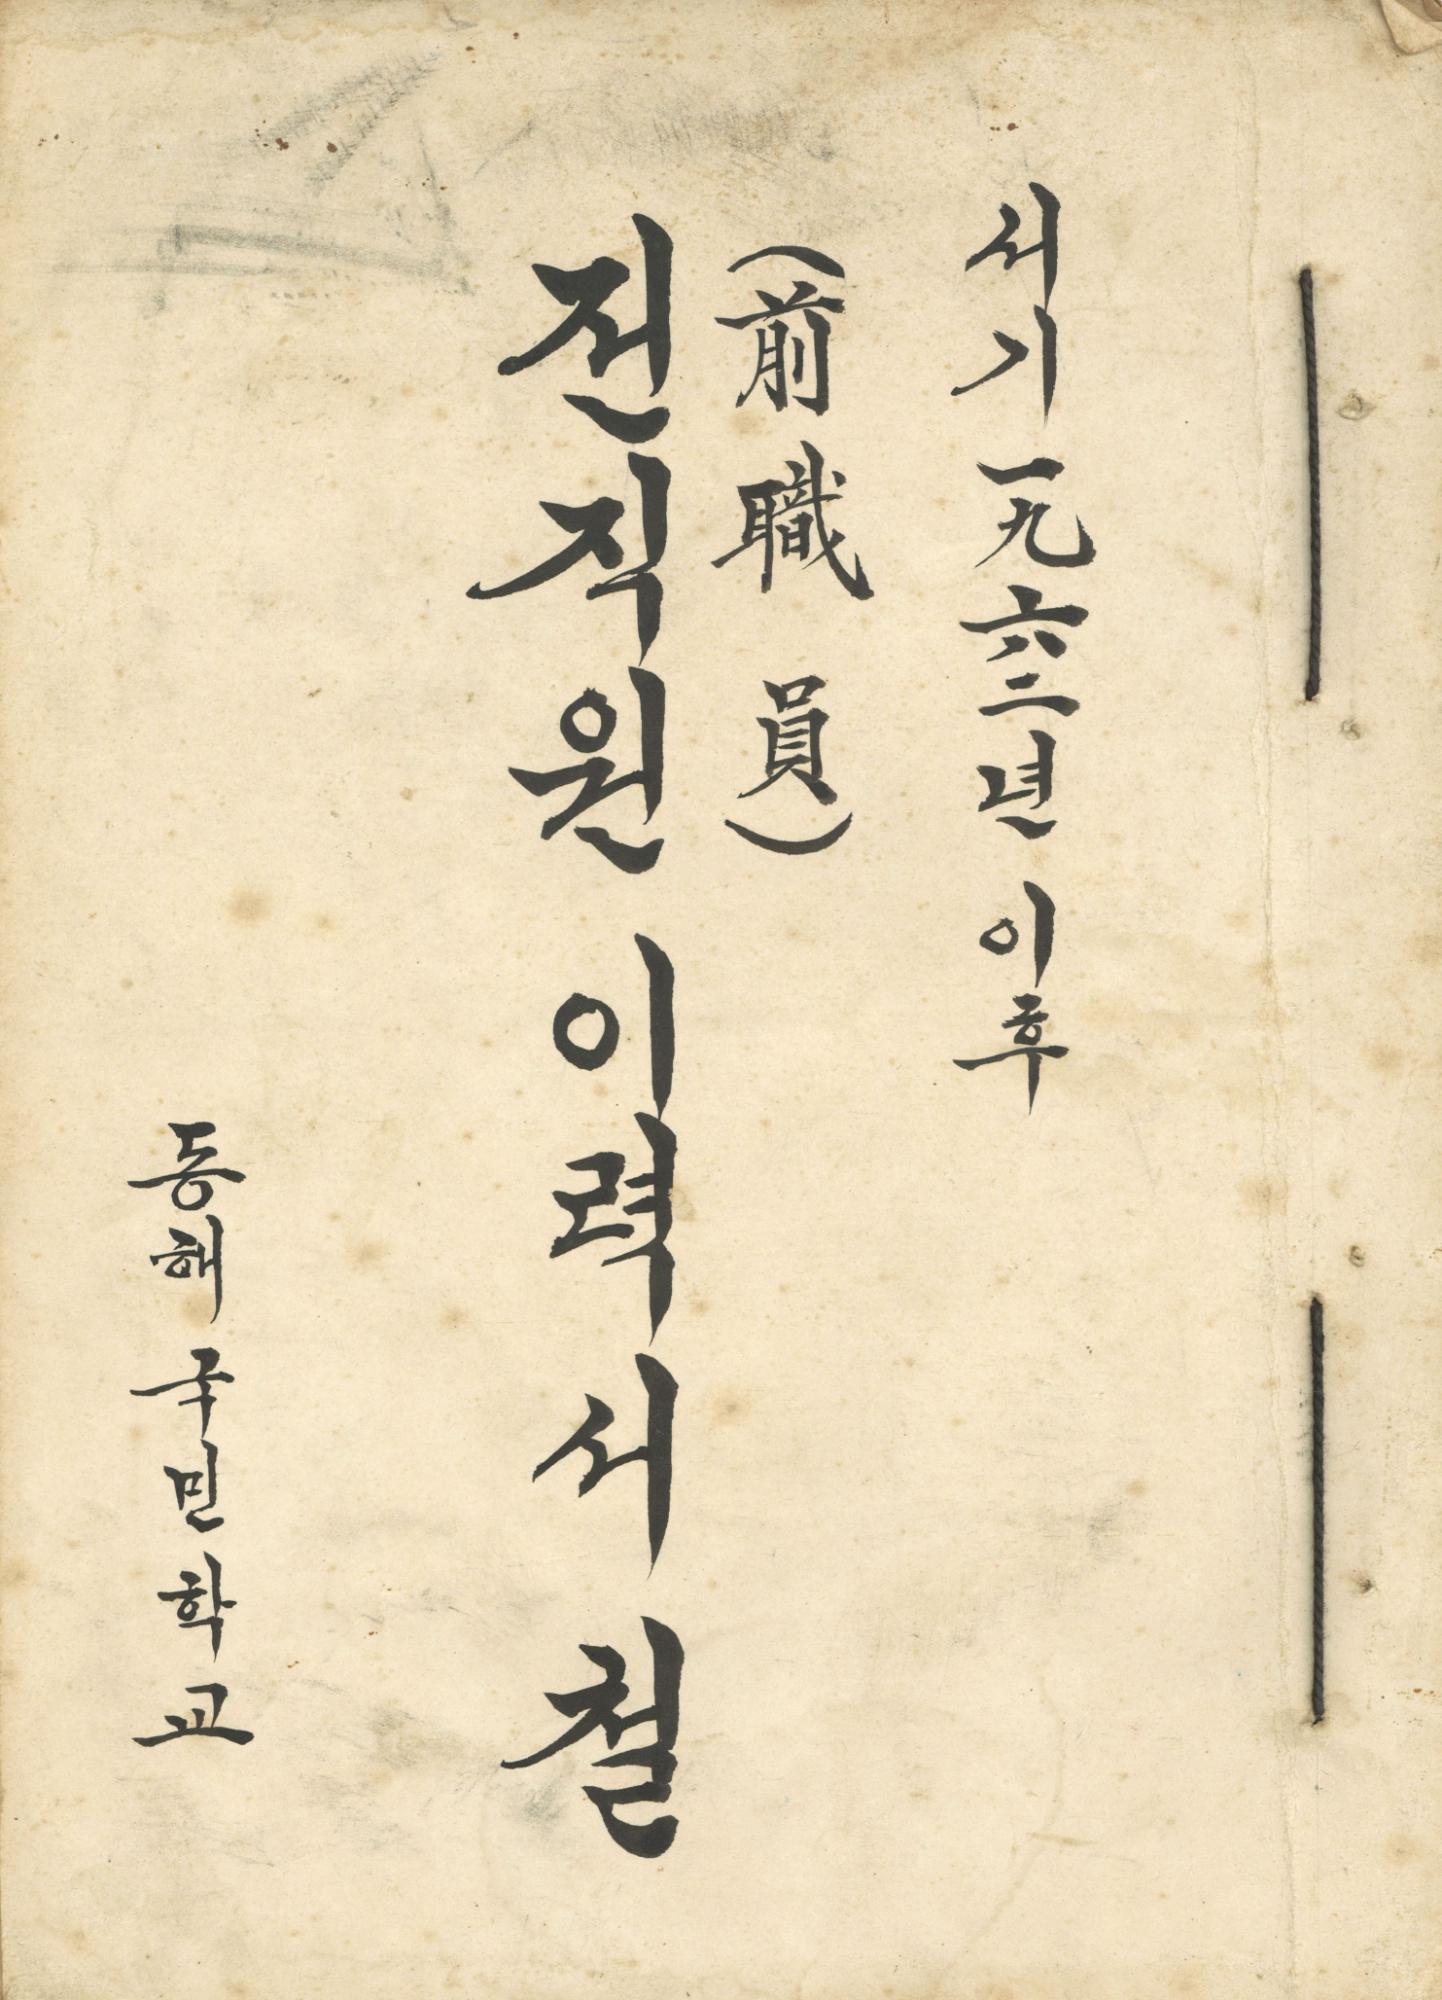 서기 一九六二년 이후
(前職員)
전직원 이력서철
동해국민학교